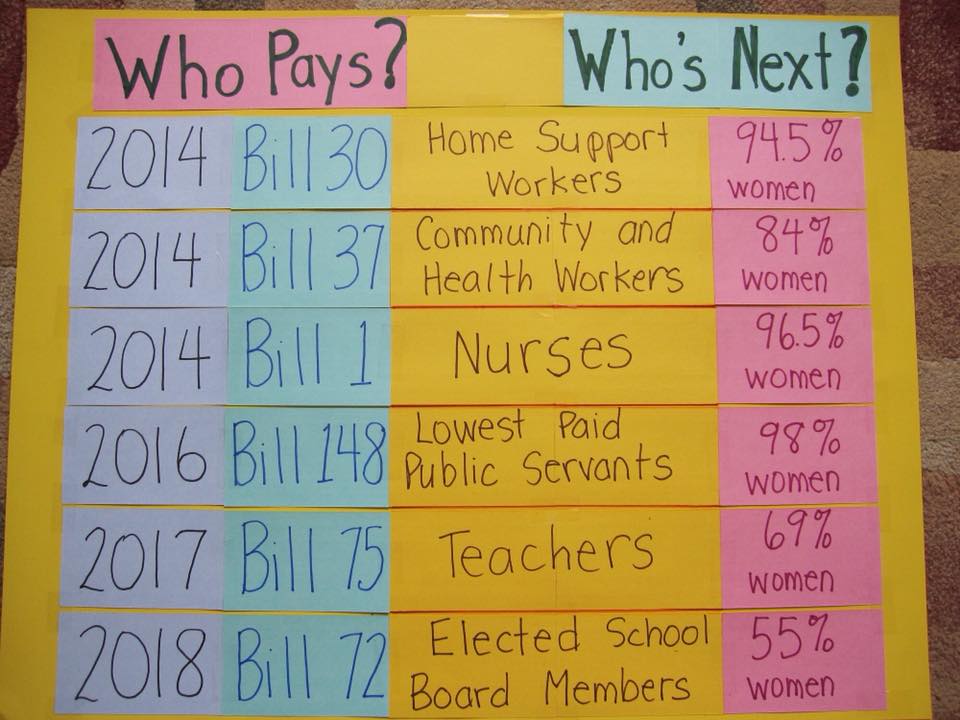 Who Pays? Who's Next?
2014 Bill 30 Home Support Workers 94.5% women
2014 Bill 37 Community and Health Workers 84% women
2014 Bill 1 Nurses 96.5% women
2016 Bill 148 Lowest Paid Public Servants 98% women
2017 Bill 75 Teachers 69% women
2018 Bill 72 Elected School Board Members 55% women